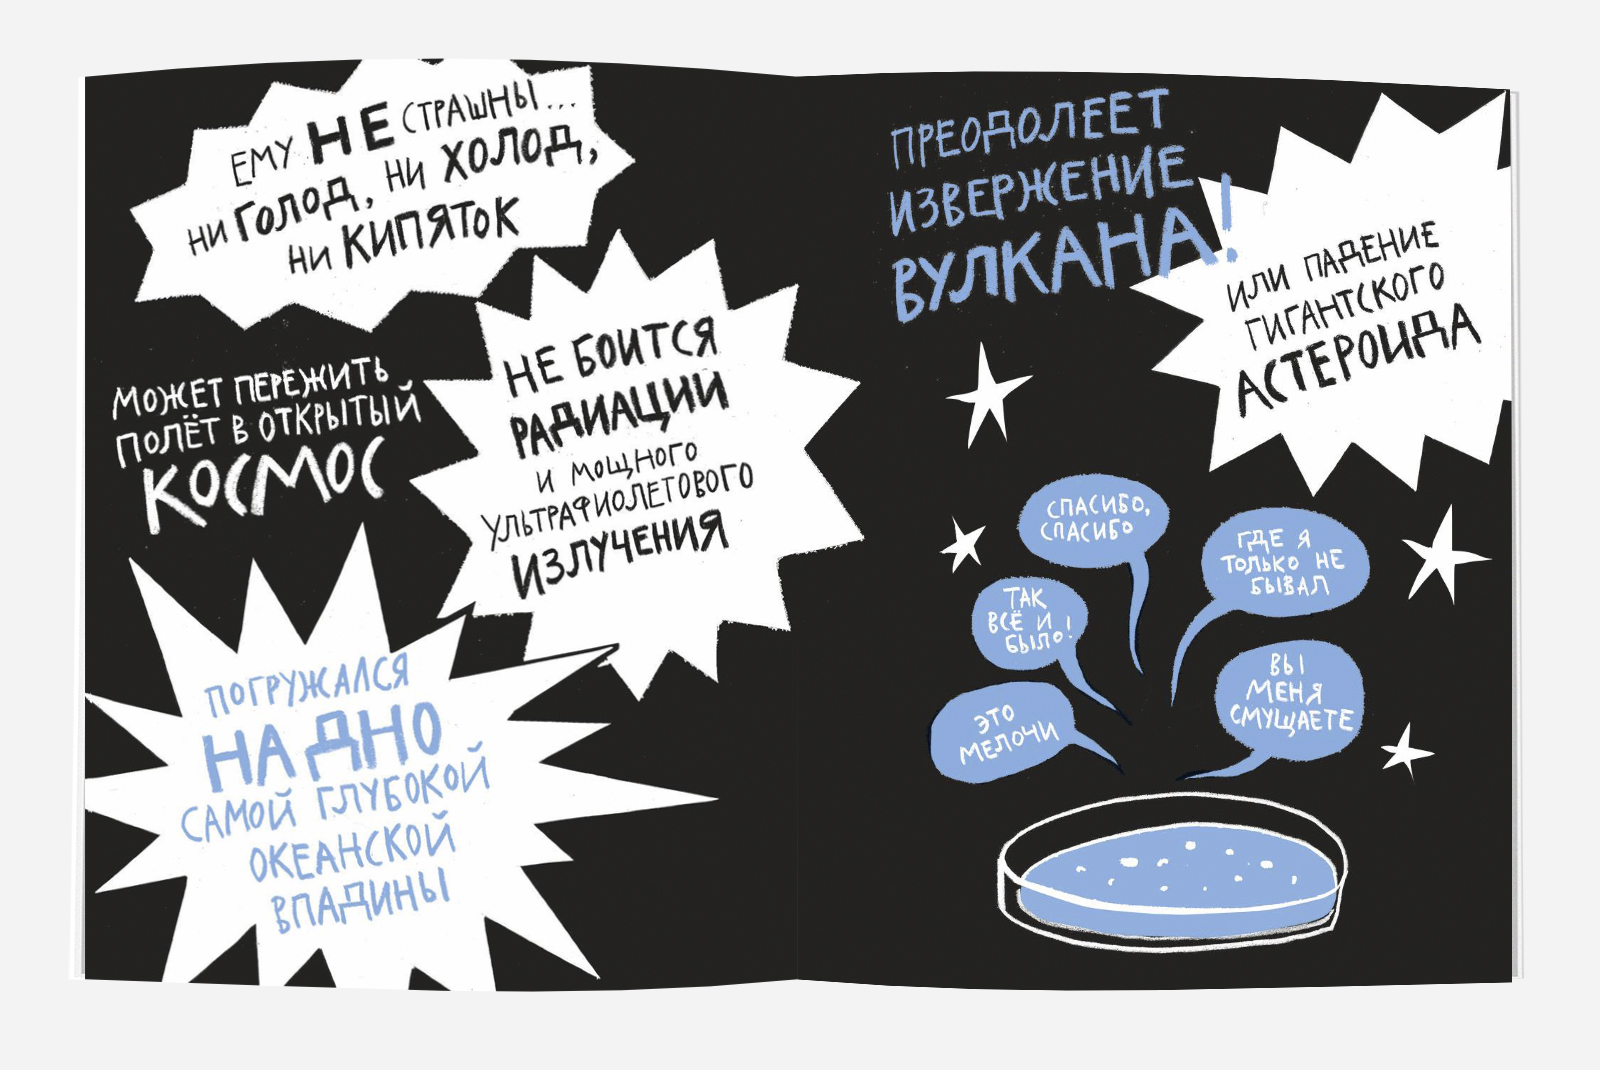 ЕМУ НЕ СТРАШНЫ...
НИ ГОЛОД, НИ ХОЛОД,
НИ КИПЯТОК
НЕ БОИТСЯ
РАДИАЦИИ
И МОЩНОГО
УЛЬТРАФИОЛЕТОВОГО
ИЗЛУЧЕНИЯ
МОЖЕТ ПЕРЕЖИТЬ
ПОЛЁТ В ОТКРЫТЫЙ
КОСМОС
ПОГРУЖАЛСЯ
НА ДНО
САМОЙ ГЛУБОКОЙ
ОКЕАНСКОЙ
ВПАДИНЫ
ПРЕОДОЛЕЕТ
ИЗВЕРЖЕНИЕ
ВУЛКАНА!
ИЛИ ПАДЕНИЕ
ГИГАНТСКОГО
АСТЕРОИДА
СПАСИБО,
СПАСИБО
ГДЕ Я
ТОЛЬКО НЕ
БЫВАЛ
ТАК
ВСЁ И
БЫЛО!
ВЫ
МЕНЯ
СМУЩАЕТЕ
ЭТО
МЕЛОЧИ